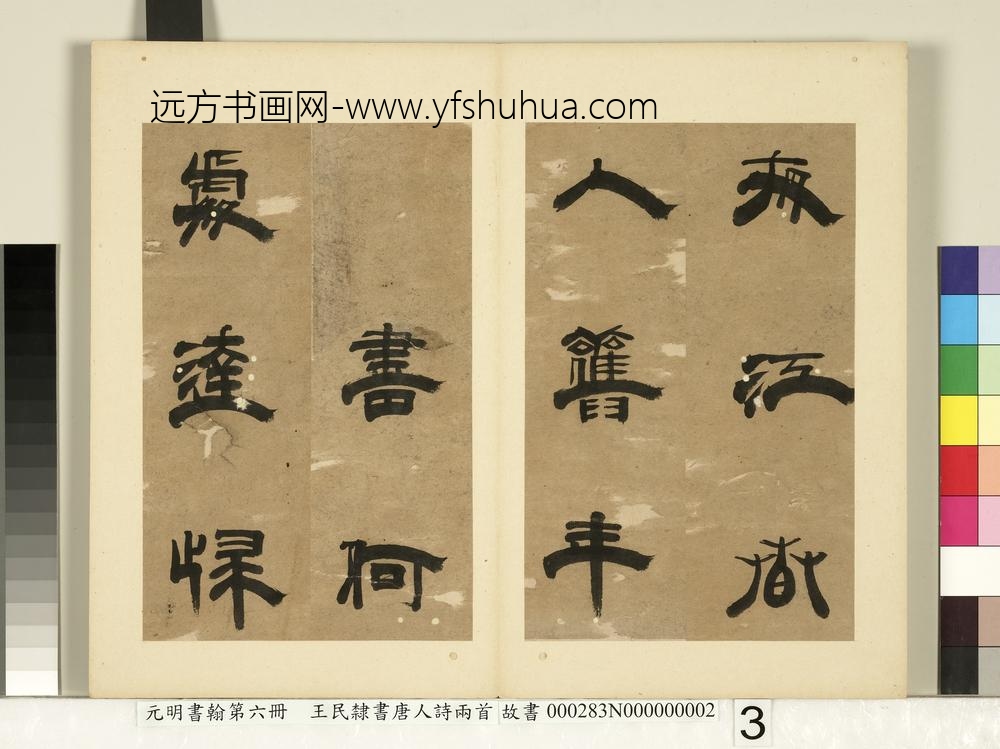 远方书画网-www.yfshuhua.com
夜江春
入舊年
書何
處達歸
元明書翰第六冊 王民隸書唐人詩兩首 故書 000283N000000002
3